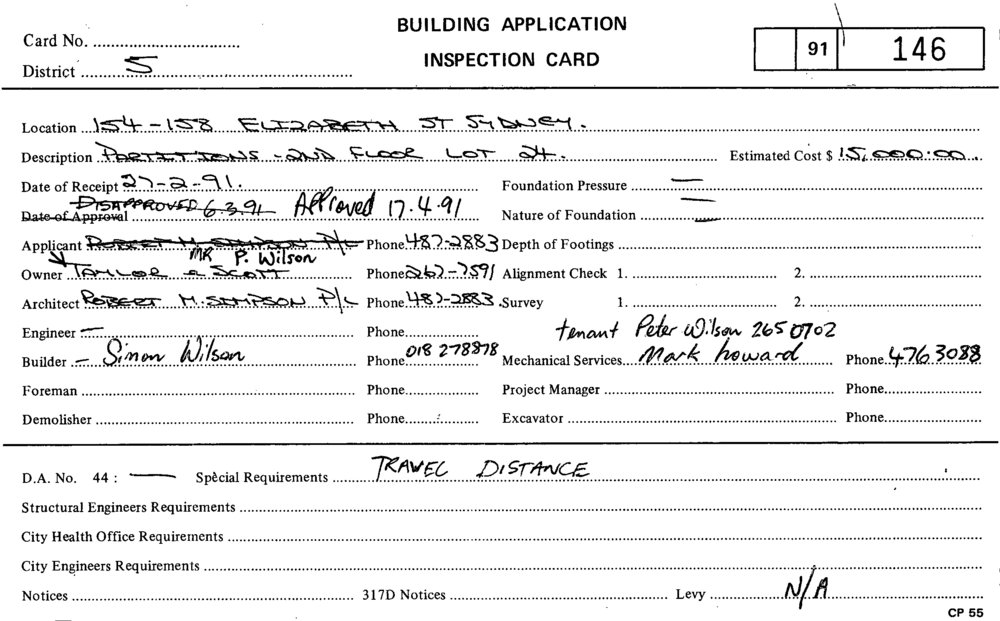 BUILDING APPLICATION
INSPECTION CARD
Card No.
District 5
91 146
Location 154-158 ELIZABETH ST SYDNEY.
Description PARTITIONS - 2ND FLOOR LOT 24. Estimated Cost $ 15,000.00
Date of Receipt 27-2-91. Foundation Pressure —
Date of Approval DISAPPROVED 6.3.91 Approved 17.4.91 Nature of Foundation —
Applicant ROBERT M. SIMPSON P/L Phone 487-2883 Depth of Footings
MR P. Wilson
Owner TAYLOR & SCOTT Phone 267-7591 Alignment Check 1. 2.
Architect ROBERT M. SIMPSON P/L Phone 487-2883 Survey 1. 2.
Engineer — Phone tenant Peter Wilson 265 0702
Builder - Simon Wilson Phone 018 278878 Mechanical Services Mark howard Phone 476 3088
Foreman Phone Project Manager Phone
Demolisher Phone Excavator Phone
D.A. No. 44 : — Special Requirements TRAVEL DISTANCE
Structural Engineers Requirements
City Health Office Requirements
City Engineers Requirements
Notices 317D Notices Levy N/A
CP 55